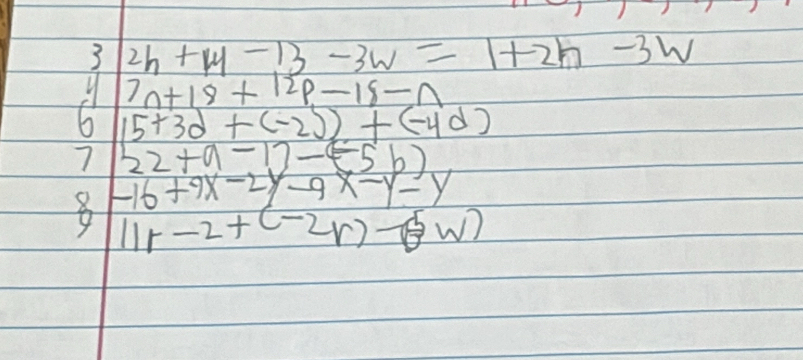 3 2h + 14 - 13 - 3w = 1 + 2h - 3w
4 7n + 18 + 12p - 18 - n
6 15 + 3d + (-2j) + (-4d)
7 22 + a - 17 - (-5b)
8 -16 + 9x - 2y - 9x - y - y
9 11r - 2 + (-2r) - w)